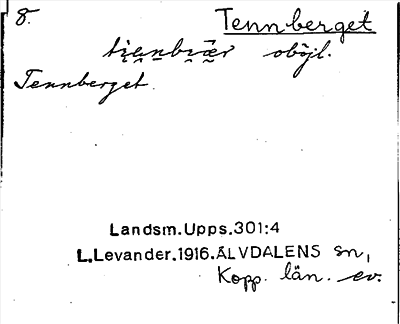 8. Tennberget
oböjl.
Tennberget.
Landsm.Upps.301:4
L.Levander.1916.ÄLVDALENS sn,
Kopp. län. ev.